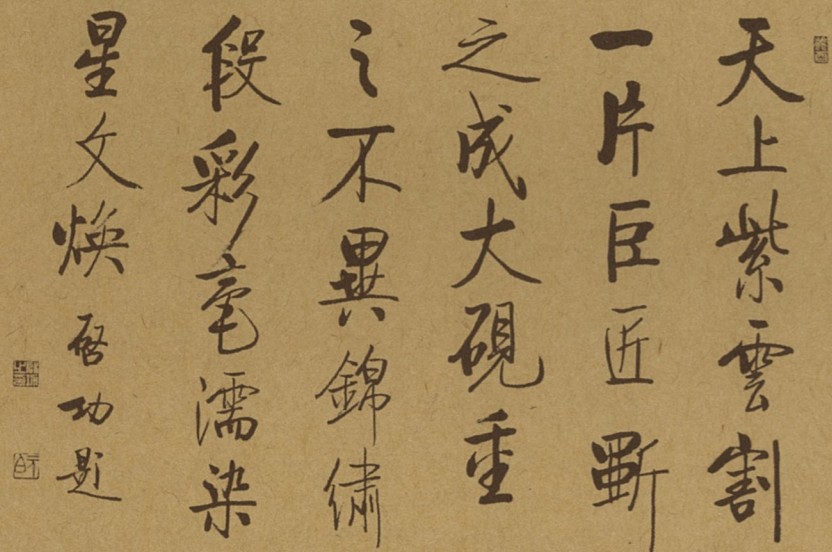 天上紫雲割
一片巨匠斲
之成大硯重
之不異錦繡
段彩毫濡染
星文煥
啓功題